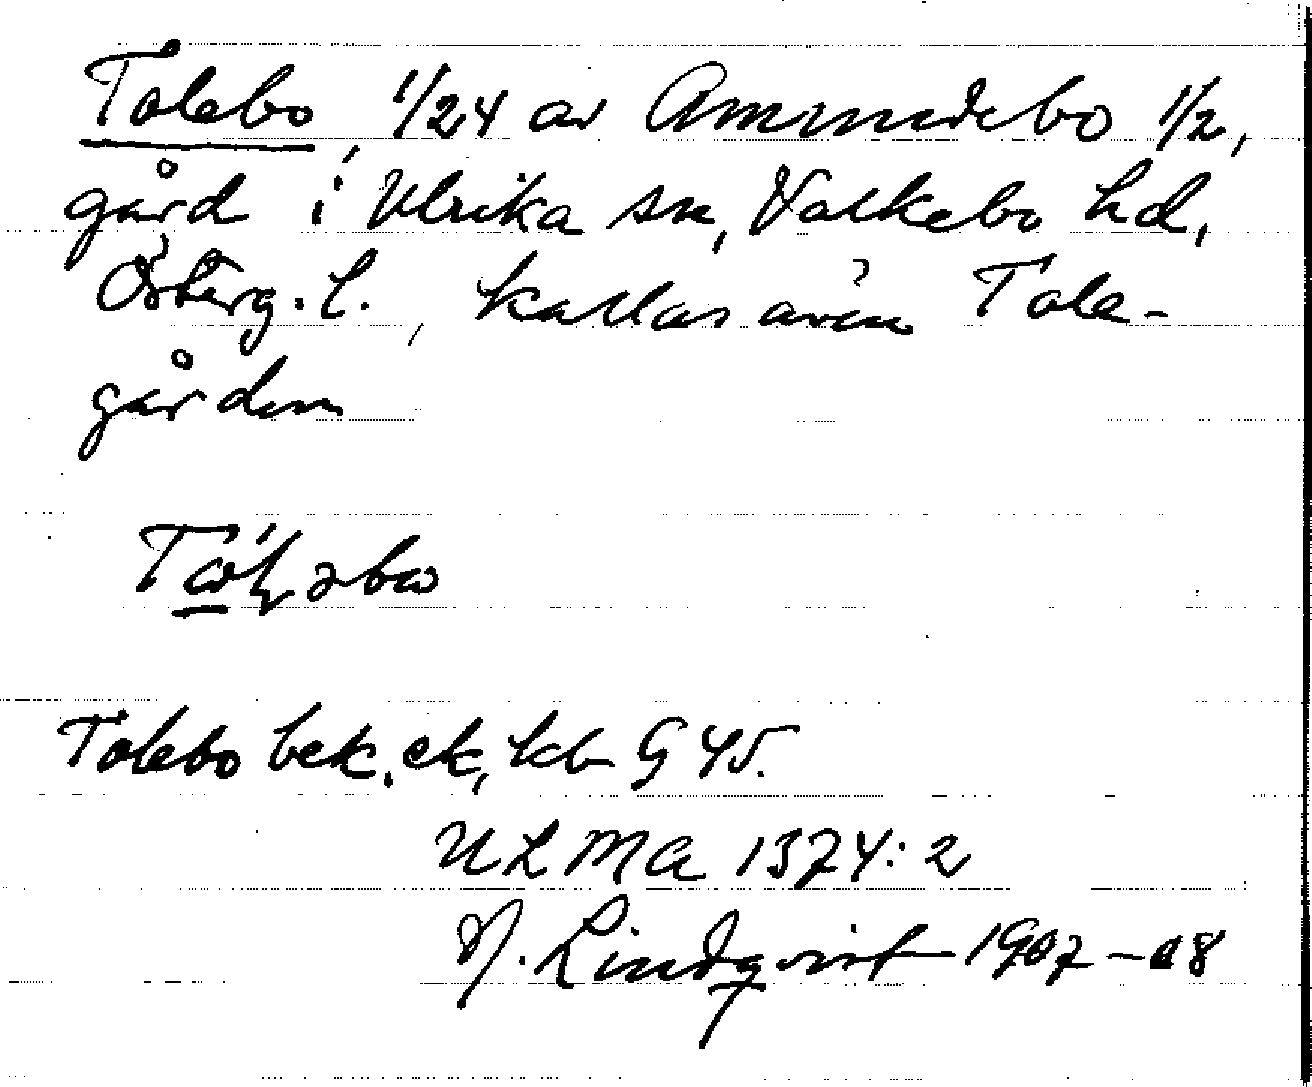 Tolebo, 1/24 av Ammundebo 1/2,
gård i Ulrika sn, Valkebo hd,
Österg. l., kallas även Tole-
gården
Tolebo bek. ek, kb G 45.
ULMA 1374:2
N. Lindqvist 1907-08